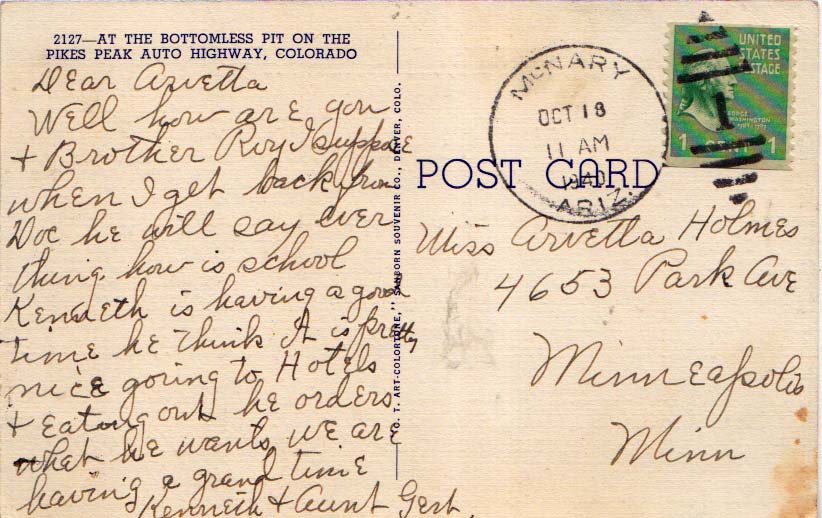 2127—AT THE BOTTOMLESS PIT ON THE
PIKES PEAK AUTO HIGHWAY, COLORADO
Dear Arvetta
Well how are you
+ Brother Roy I suppose
when I get back from
Doc he will say ever
thing how is school
Kenneth is having a good
time he think it is pretty
nice going to Hotels
+ Eating out he orders
what he wants, we are
having a grand time
Kenneth + Aunt Gert.
C. T. ART-COLORTONE," SANBORN SOUVENIR CO., DENVER, COLO.
POST CARD
McNARY
OCT 18
11 AM
1940
ARIZ.
UNITED
STATES
POSTAGE
1
GEORGE
WASHINGTON
1789-1797
1 CENT 1
Miss Arvetta Holmes
4653 Park Ave
Minneapolis
Minn